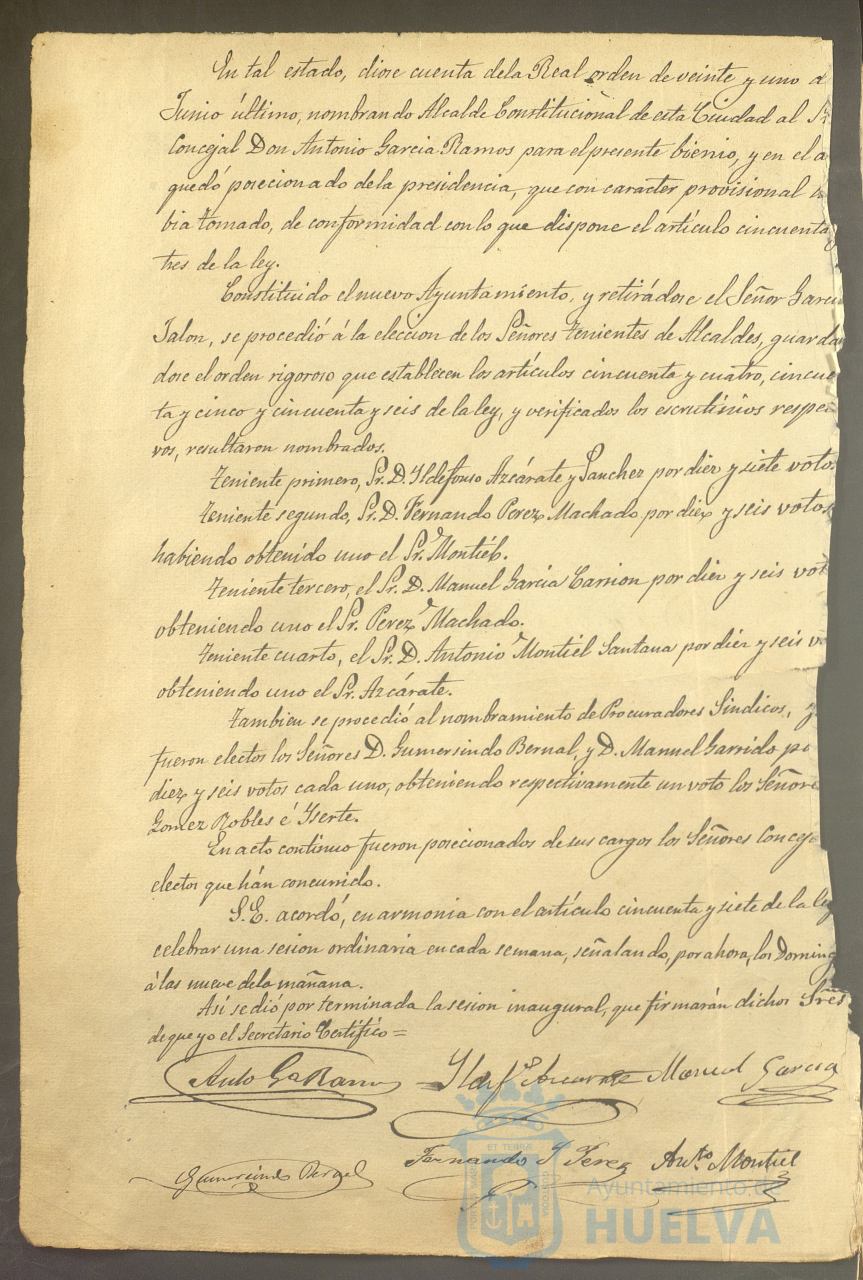 En tal estado, diose cuenta dela Real orden de veinte y uno d
Junio último, nombrando Alcalde Constitucional de esta Ciudad al Sr.
Concejal Don Antonio Garcia Ramos para el presente bienio, y en el a
quedó posecionado dela presidencia, que con caracter provisional
bia tomado, de conformidad con lo que dispone el artículo cincuenta y
tres de la ley.
Constituido el nuevo Ayuntamiento, y retirádose el Señor Garcia
Jalon, se procedió á la eleccion de los Señores Tenientes de Alcaldes, guardan
dose el orden rigoroso que establecen los artículos cincuenta y cuatro, cincuen
ta y cinco y cincuenta y seis de la ley, y verificados los escrutinios respec
vos, resultaron nombrados.
Teniente primero, Sr. D. Yldefonso Azcárate y Sanchez por diez y siete votos
Teniente segundo, Sr. D. Fernando Perez Machado por diez y seis votos
habiendo obtenido uno el Sr. Montiél.
Teniente tercero, el Sr. D. Manuel Garcia Carrion por diez y seis vot
obteniendo uno el Sr. Perez Machado.
Teniente cuarto, el Sr. D. Antonio Montiél Santana por diez y seis v
obteniendo uno el Sr. Azcárate.
Tambien se procedió al nombramiento de Procuradores Sindicos, y
fueron electos los Señores D. Gumersindo Bernal, y D. Manuel Garrido po
diez y seis votos cada uno, obteniendo respectivamente un voto los Señore
Gomez Robles é Yserte.
En acto continuo fueron posecionados de sus cargos los Señores Conceja
electos que hán concurrido.
S. E. acordó, en armonia con el artículo cincuenta y siete de la ley
celebrar una sesion ordinaria en cada semana, señalando, por ahora, los Doming
á las nueve dela mañana.
Así se dió por terminada la sesion inaugural, que firmarán dichos Sres
de que yo el Secretario Certifíco =
Anto Ga Ramos Yldefso Azcarate Manuel Garcia
Gumersindo Bernal Fernando J Perez Anto. Montiel
Ayuntamiento de
HUELVA